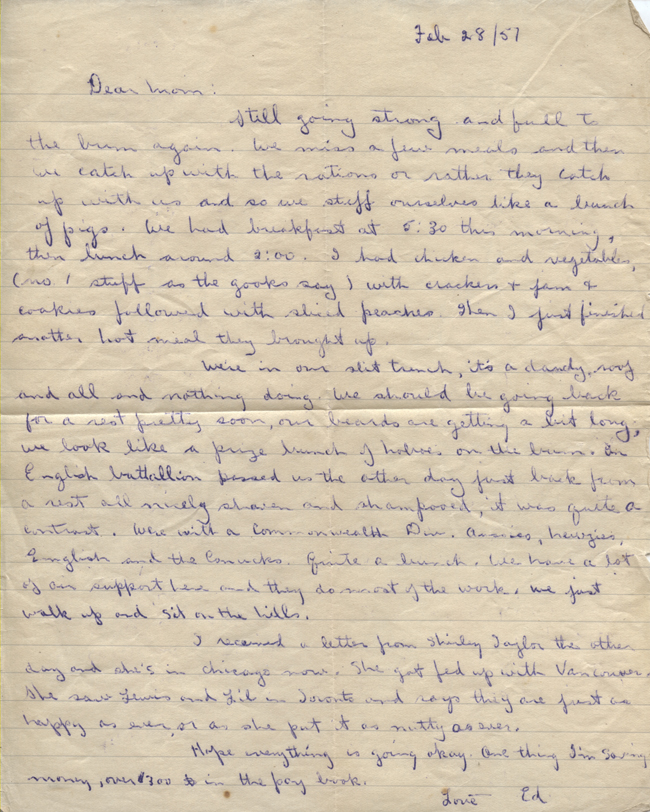 Feb 28/51
Dear Mom:
Still going strong and full to
the brim again. We miss a few meals and then
we catch up with the rations or rather they catch
up with us and so we stuff ourselves like a bunch
of pigs. We had breakfast at 5:30 this morning,
then lunch around 2:00. I had chicken and vegetables,
(no 1 stuff as the gooks say) with crackers + jam +
cookies followed with sliced peaches. Then I just finished
another hot meal they brought up.
We're in our slit trench, it's a dandy, roof
and all and nothing doing. We should be going back
for a rest pretty soon, our beards are getting a bit long,
we look like a prize bunch of hoboes on the bum. An
English battallion passed us the other day just back from
a rest all nicely shaven and shampooed, it was quite a
contrast. We're with a Commonwealth Div. Aussies, Newzies,
English and the Canucks. Quite a bunch. We have a lot
of air support here and they do most of the work. We just
walk up and sit on the hills.
I received a letter from Shirley Taylor the other
day and she's in Chicago now. She got fed up with Vancouver.
She saw Lewis and Lil in Toronto and says they are just as
happy as ever, or as she put it as nutty as ever.
Hope everything is going okay. One thing I'm saving
money, over $300 in the pay book.
Love Ed